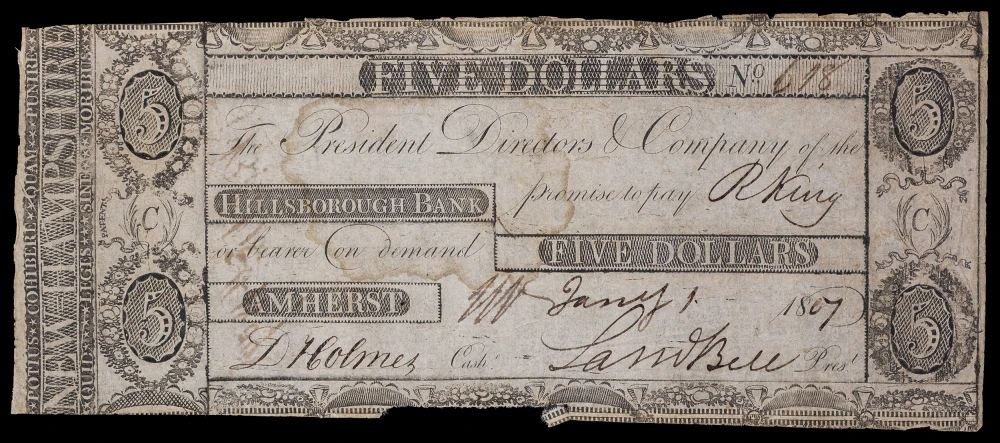 POTIUS COHIBRE QUAM PUNIRE
NEW HAMPSHIRE
QUID LEGES SINE MORIBUS
5
C
5
PATENTS
FIVE DOLLARS No 678
The President Directors & Company of the
promise to pay R King
HILLSBOROUGH BANK
or bearer on demand
FIVE DOLLARS
AMHERST Jany 1 1807
D Holmes Cashr Saml Bell Prest
5
C
5